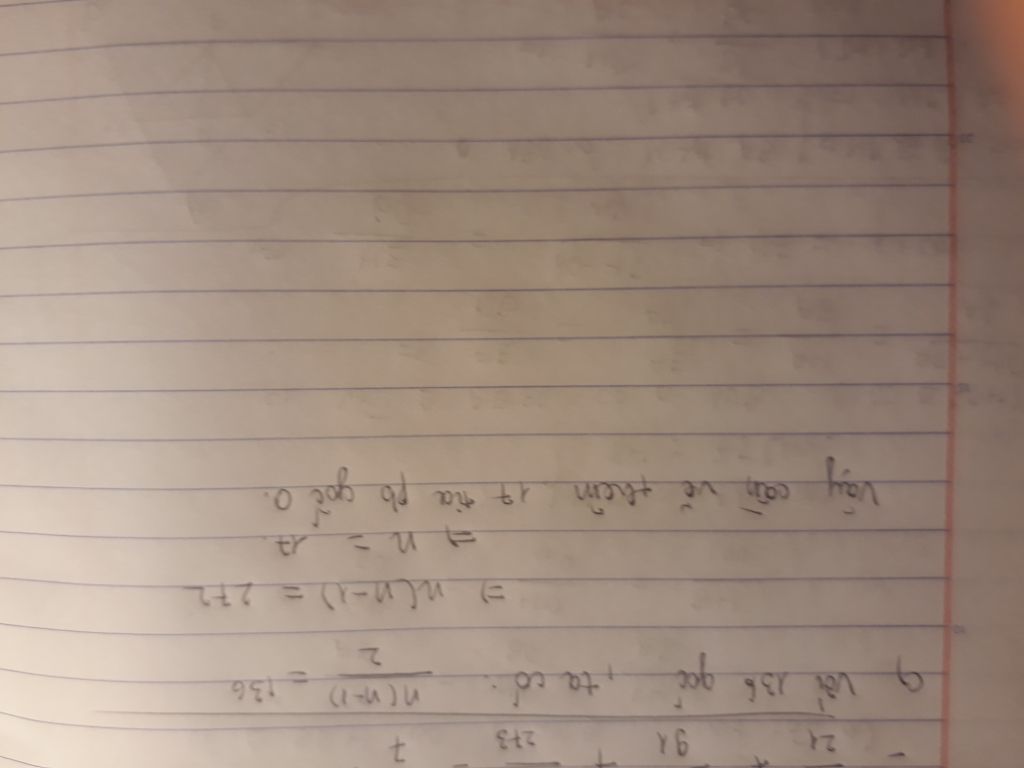 - 21 91 + 273 = 7
9 Với 136 góc, ta có: n(n-1)/2 = 136
=> n(n-1) = 272
=> n = 17.
Vậy cần vẽ thêm 17 tia pb gốc O.